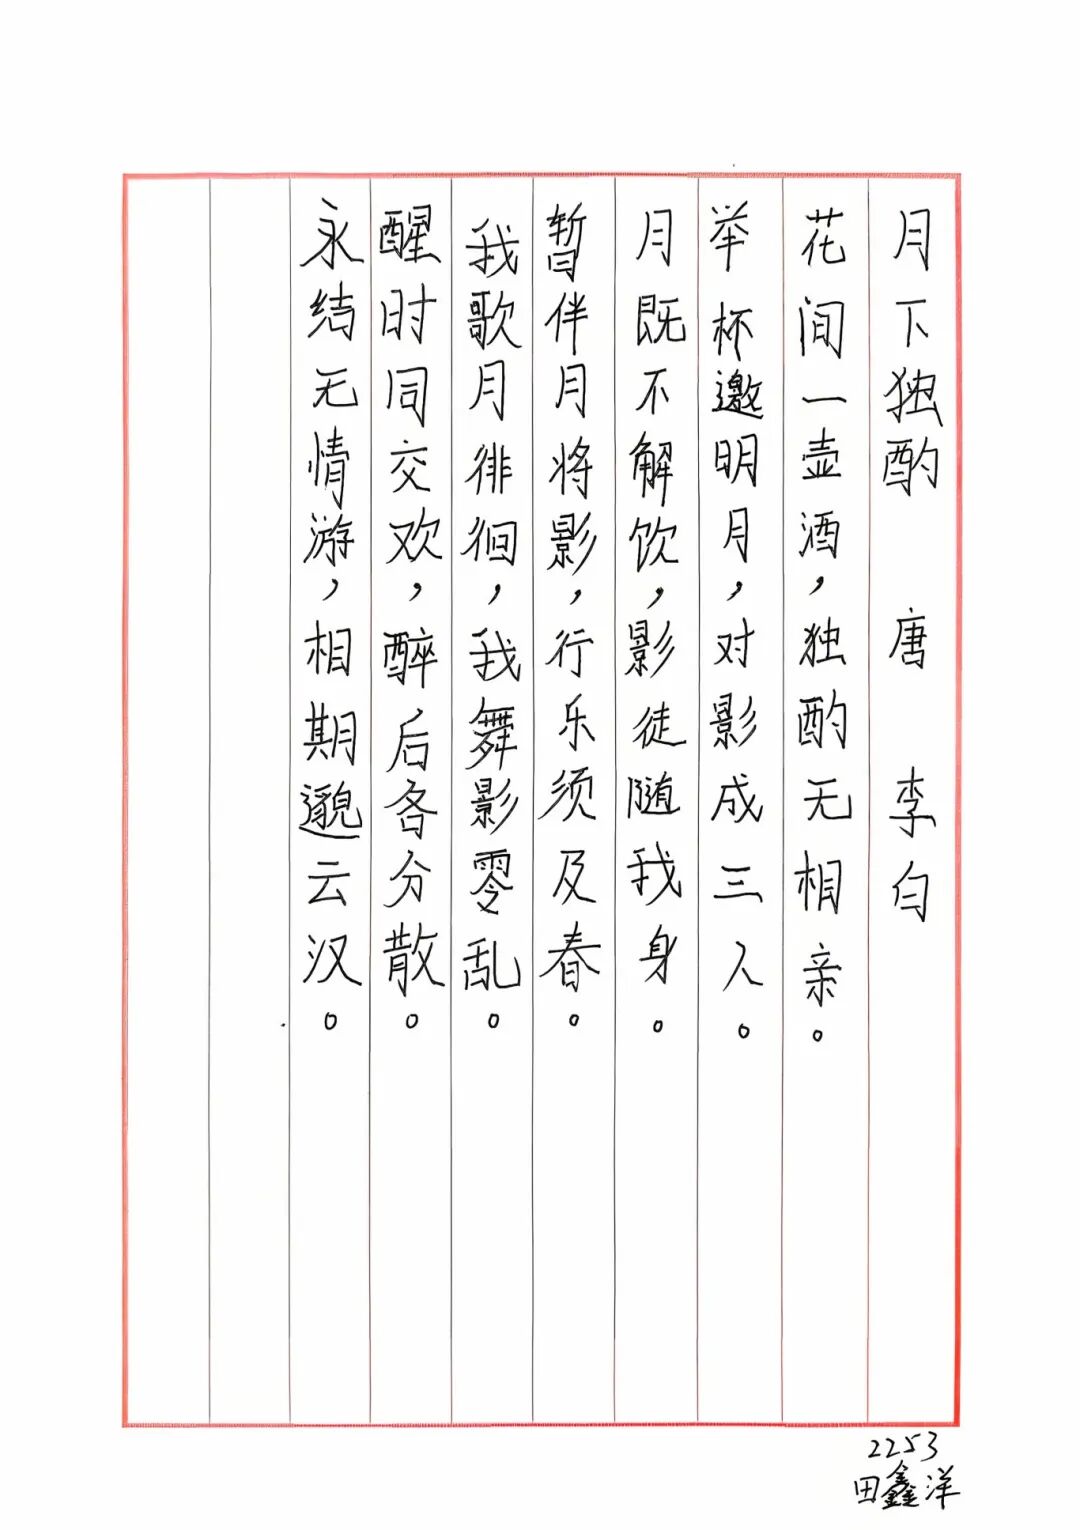 月下独酌 唐 李白
花间一壶酒，独酌无相亲。
举杯邀明月，对影成三人。
月既不解饮，影徒随我身。
暂伴月将影，行乐须及春。
我歌月徘徊，我舞影零乱。
醒时同交欢，醉后各分散。
永结无情游，相期邈云汉。
2253
田鑫洋